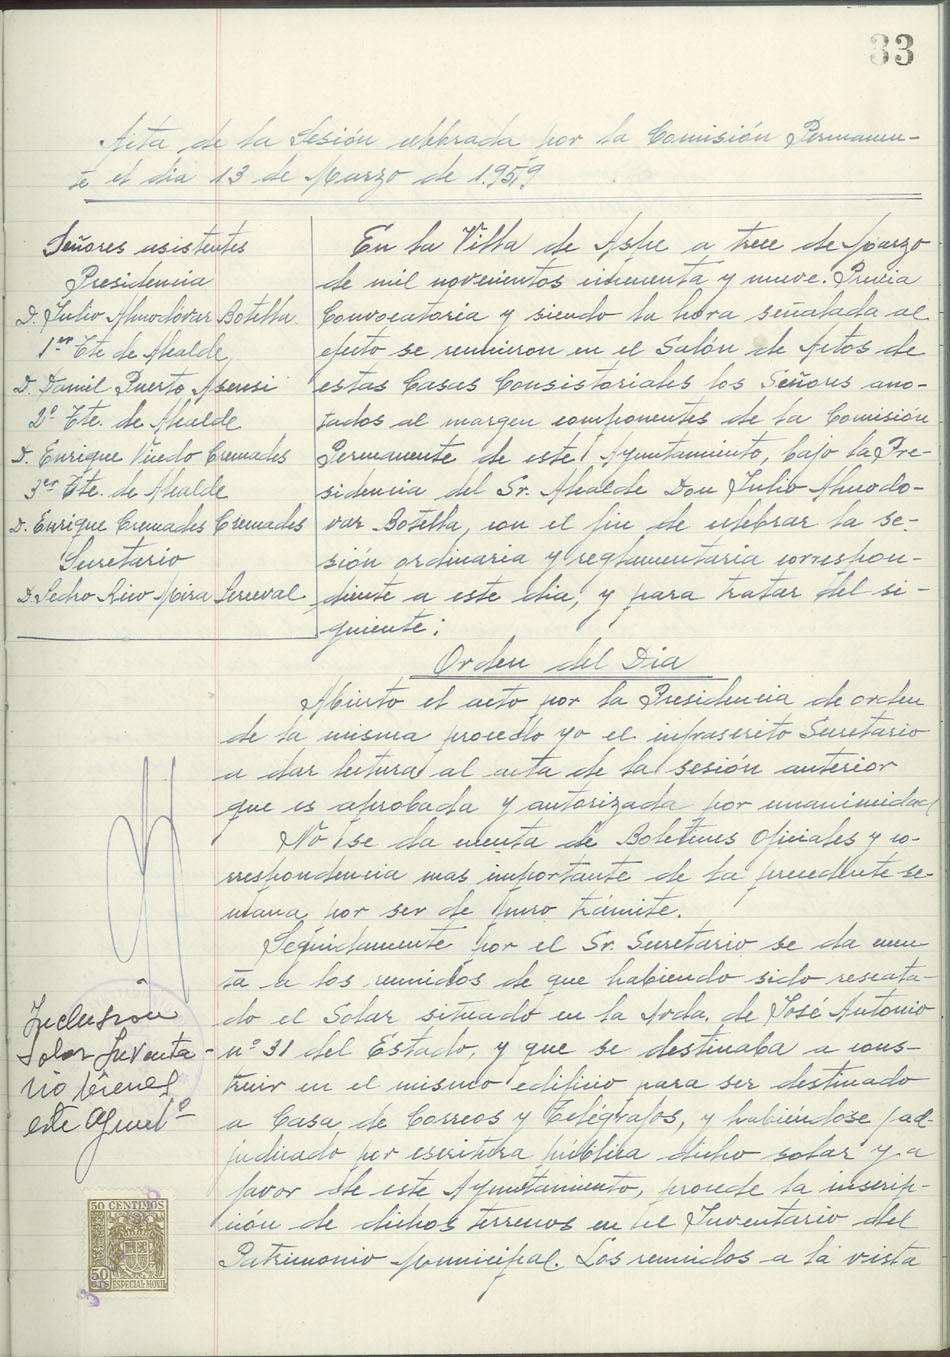 33
Acta de la Sesión celebrada por la Comisión Permanen-
te el dia 13 de Marzo de 1.959
Señores asistentes
Presidencia
D. Julio Almodóvar Botella
1er Tte de Alcalde
D. Daniel Puerto Asensi
2º Tte. de Alcalde
D. Enrique Viudo Cremades
3er Tte. de Alcalde
D. Enrique Cremades Cremades
Secretario
D. Pedro Rico Mira Perceval
En la Villa de Aspe a trece de Marzo
de mil novecientos cincuenta y nueve. Previa
Convocatoria y siendo la hora señalada al
efecto se reunieron en el Salón de Actos de
estas Casas Consistoriales los Señores ano-
tados al margen componentes de la Comisión
Permanente de este Ayuntamiento, bajo la Pre-
sidencia del Sr. Alcalde Don Julio Almodo-
var Botella, con el fin de celebrar la se-
sión ordinaria y reglamentaria correspon-
diente a este dia, y para tratar del si-
guiente:
Orden del Dia
Abierto el acto por la Presidencia de orden
de la misma procedo yo el infrascrito Secretario
a dar lectura al acta de la sesión anterior
que es aprobada y autorizada por unanimidad
No se da cuenta de Boletines Oficiales y co-
rrespondencia mas importante de la precedente se-
mana por ser de puro trámite.
Seguidamente por el Sr. Secretario se da cuen-
ta a los reunidos de que habiendo sido rescata-
do el Solar situado en la Avda. de José Antonio
nº 31 del Estado, y que se destinaba a cons-
truir en el mismo edificio para ser destinado
a Casa de Correos y Telégrafos, y habiéndose ad-
judicado por escritura pública dicho solar y a
favor de este Ayuntamiento, procede la inscrip-
ción de dichos terrenos en el Inventario del
Patrimonio Municipal. Los reunidos a la vista
Inclusión
Solar Inventa-
rio bienes
este Ayuntº
50 CENTIMOS
50
CTS
ESPECIAL MOVIL